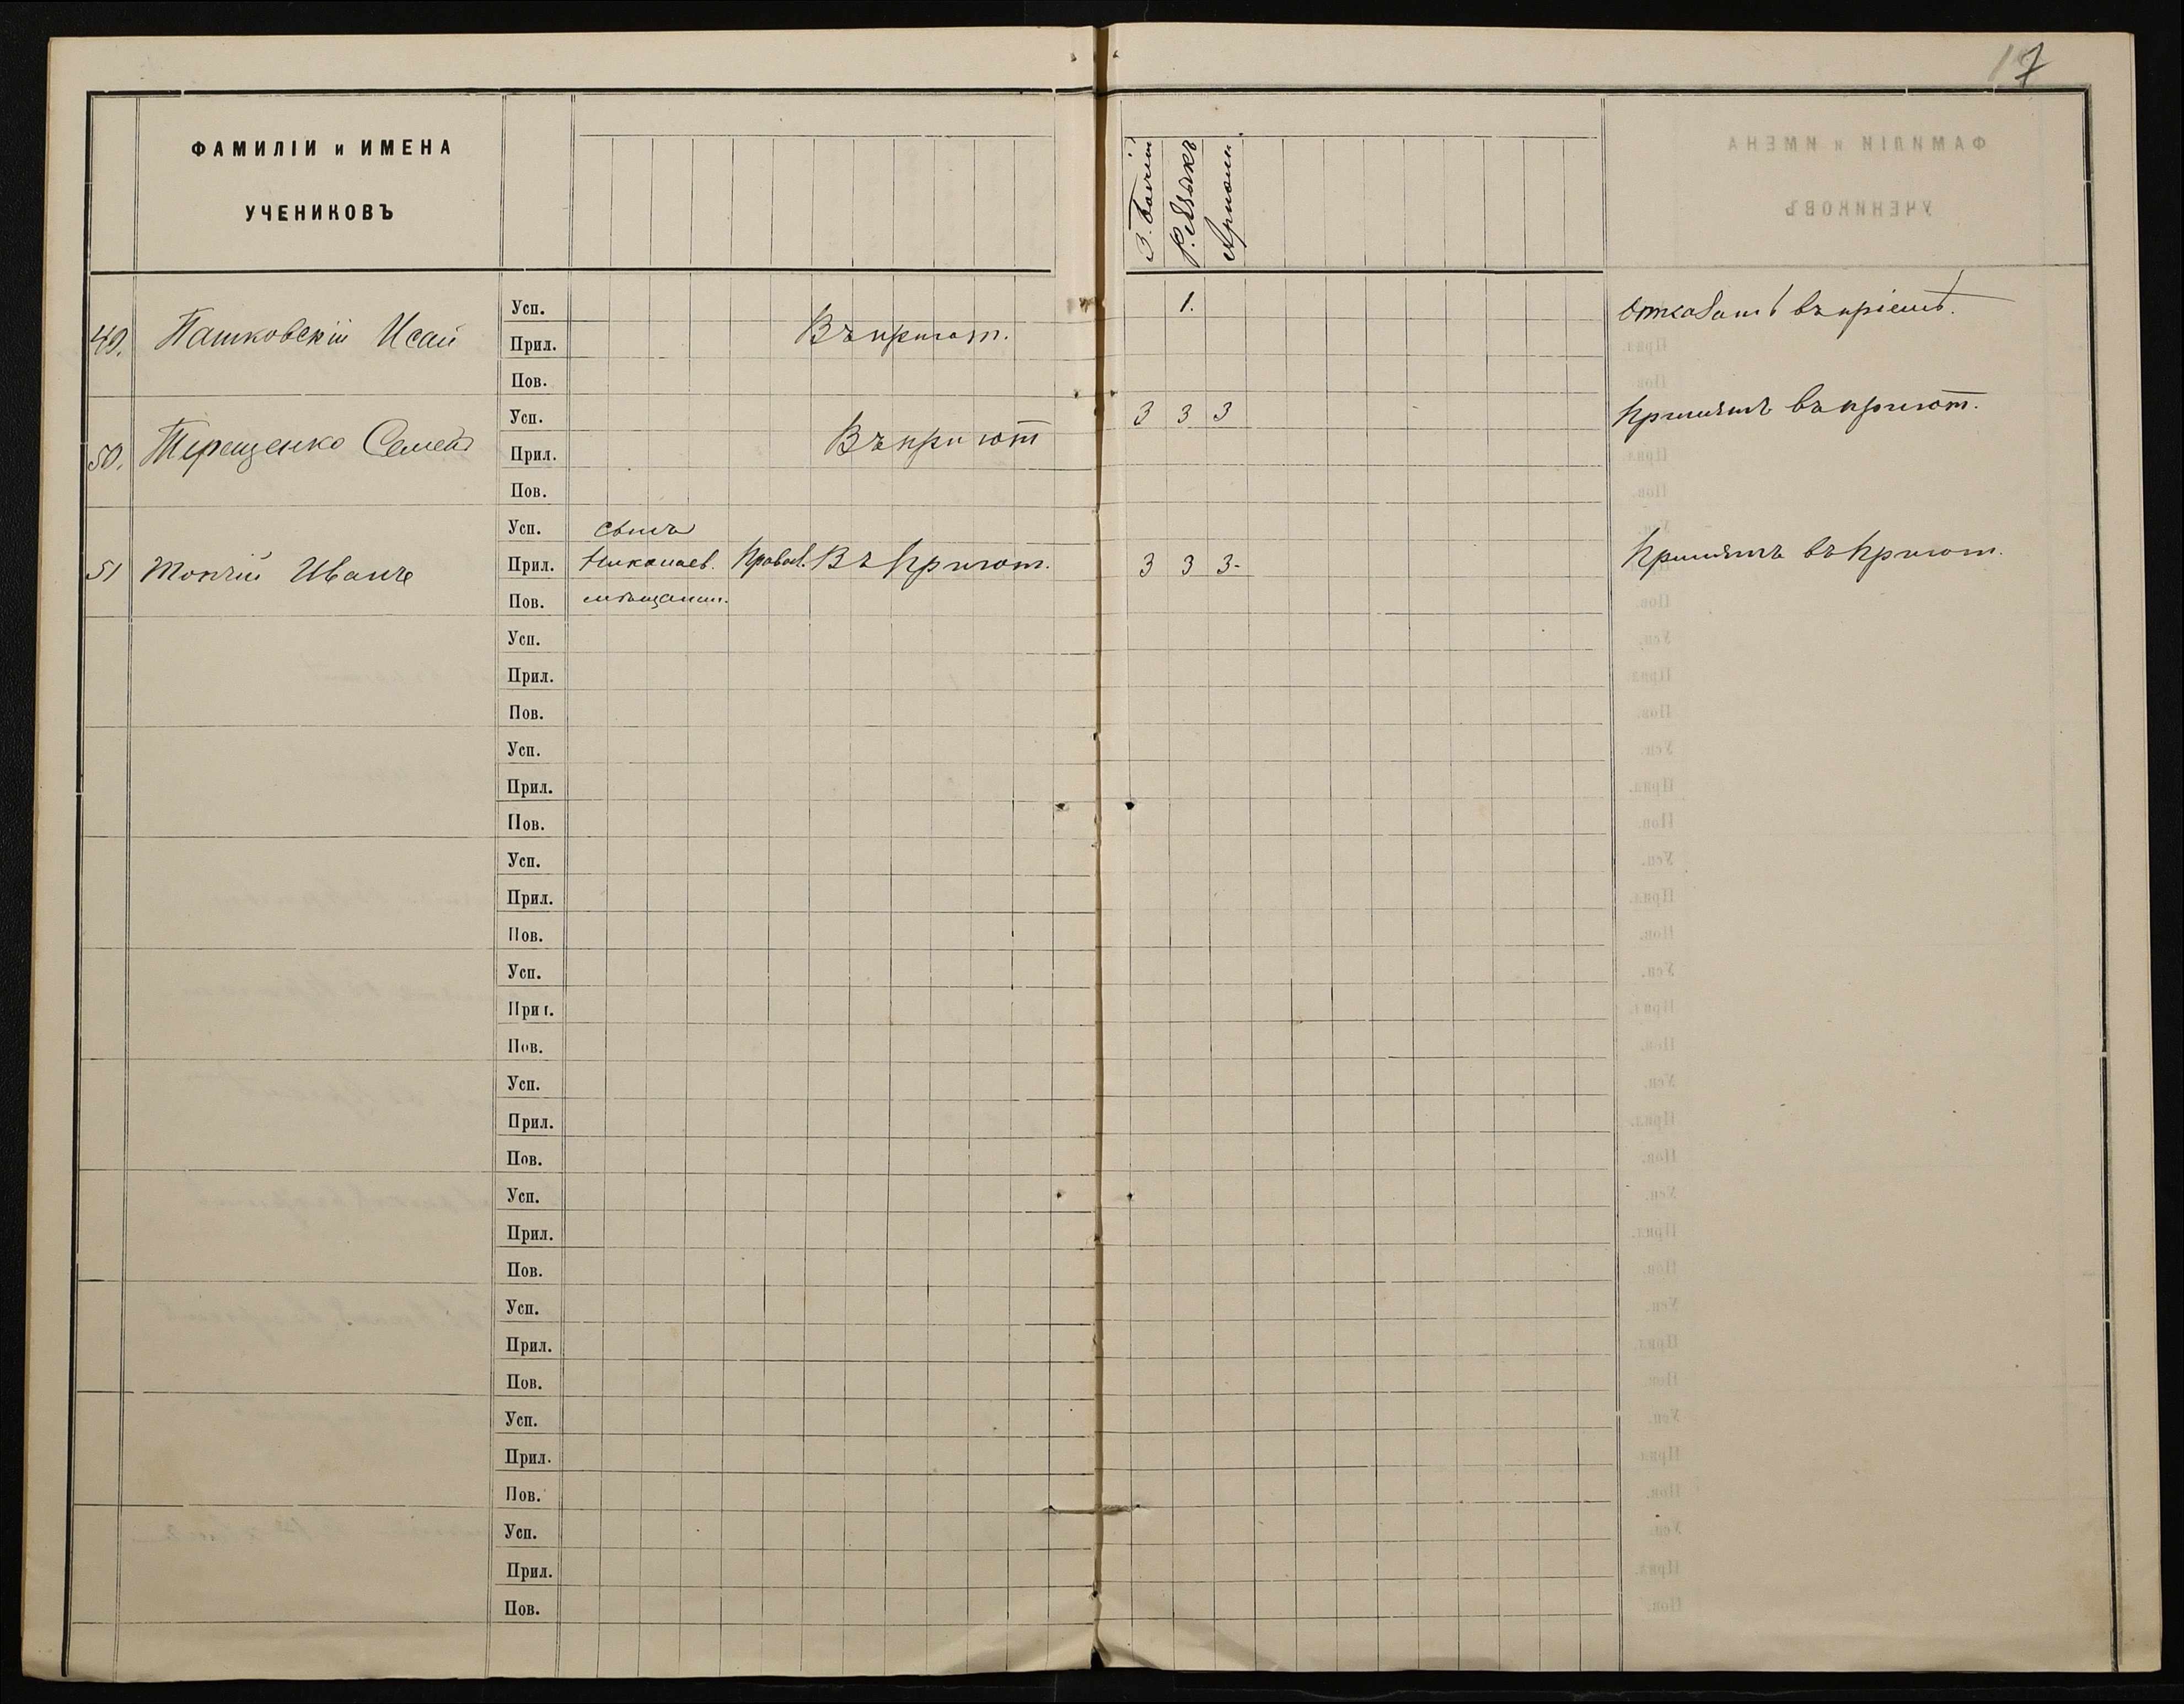 17
ФАМИЛІИ и ИМЕНА
УЧЕНИКОВЪ
З. Божій
Р. Языкъ
Ариѳм.
49. Пашковскій Исай
Усп.
Прил.
Пов.
Въ пріют.
1.
Отказать въ пріемѣ.
50. Терещенко Семенъ
Усп.
Прил.
Пов.
Въ пріют
3 3 3
Принятъ въ пріют.
51 Топчій Иванъ
Усп. сынъ
Прил. Николаев. Правосл. Въ Пріют.
Пов. мѣщанин.
3 3 3-
Принятъ въ Пріют.
Усп.
Прил.
Пов.
Усп.
Прил.
Пов.
Усп.
Прил.
Пов.
Усп.
Прил.
Пов.
Усп.
Прил.
Пов.
Усп.
Прил.
Пов.
Усп.
Прил.
Пов.
Усп.
Прил.
Пов.
Усп.
Прил.
Пов.